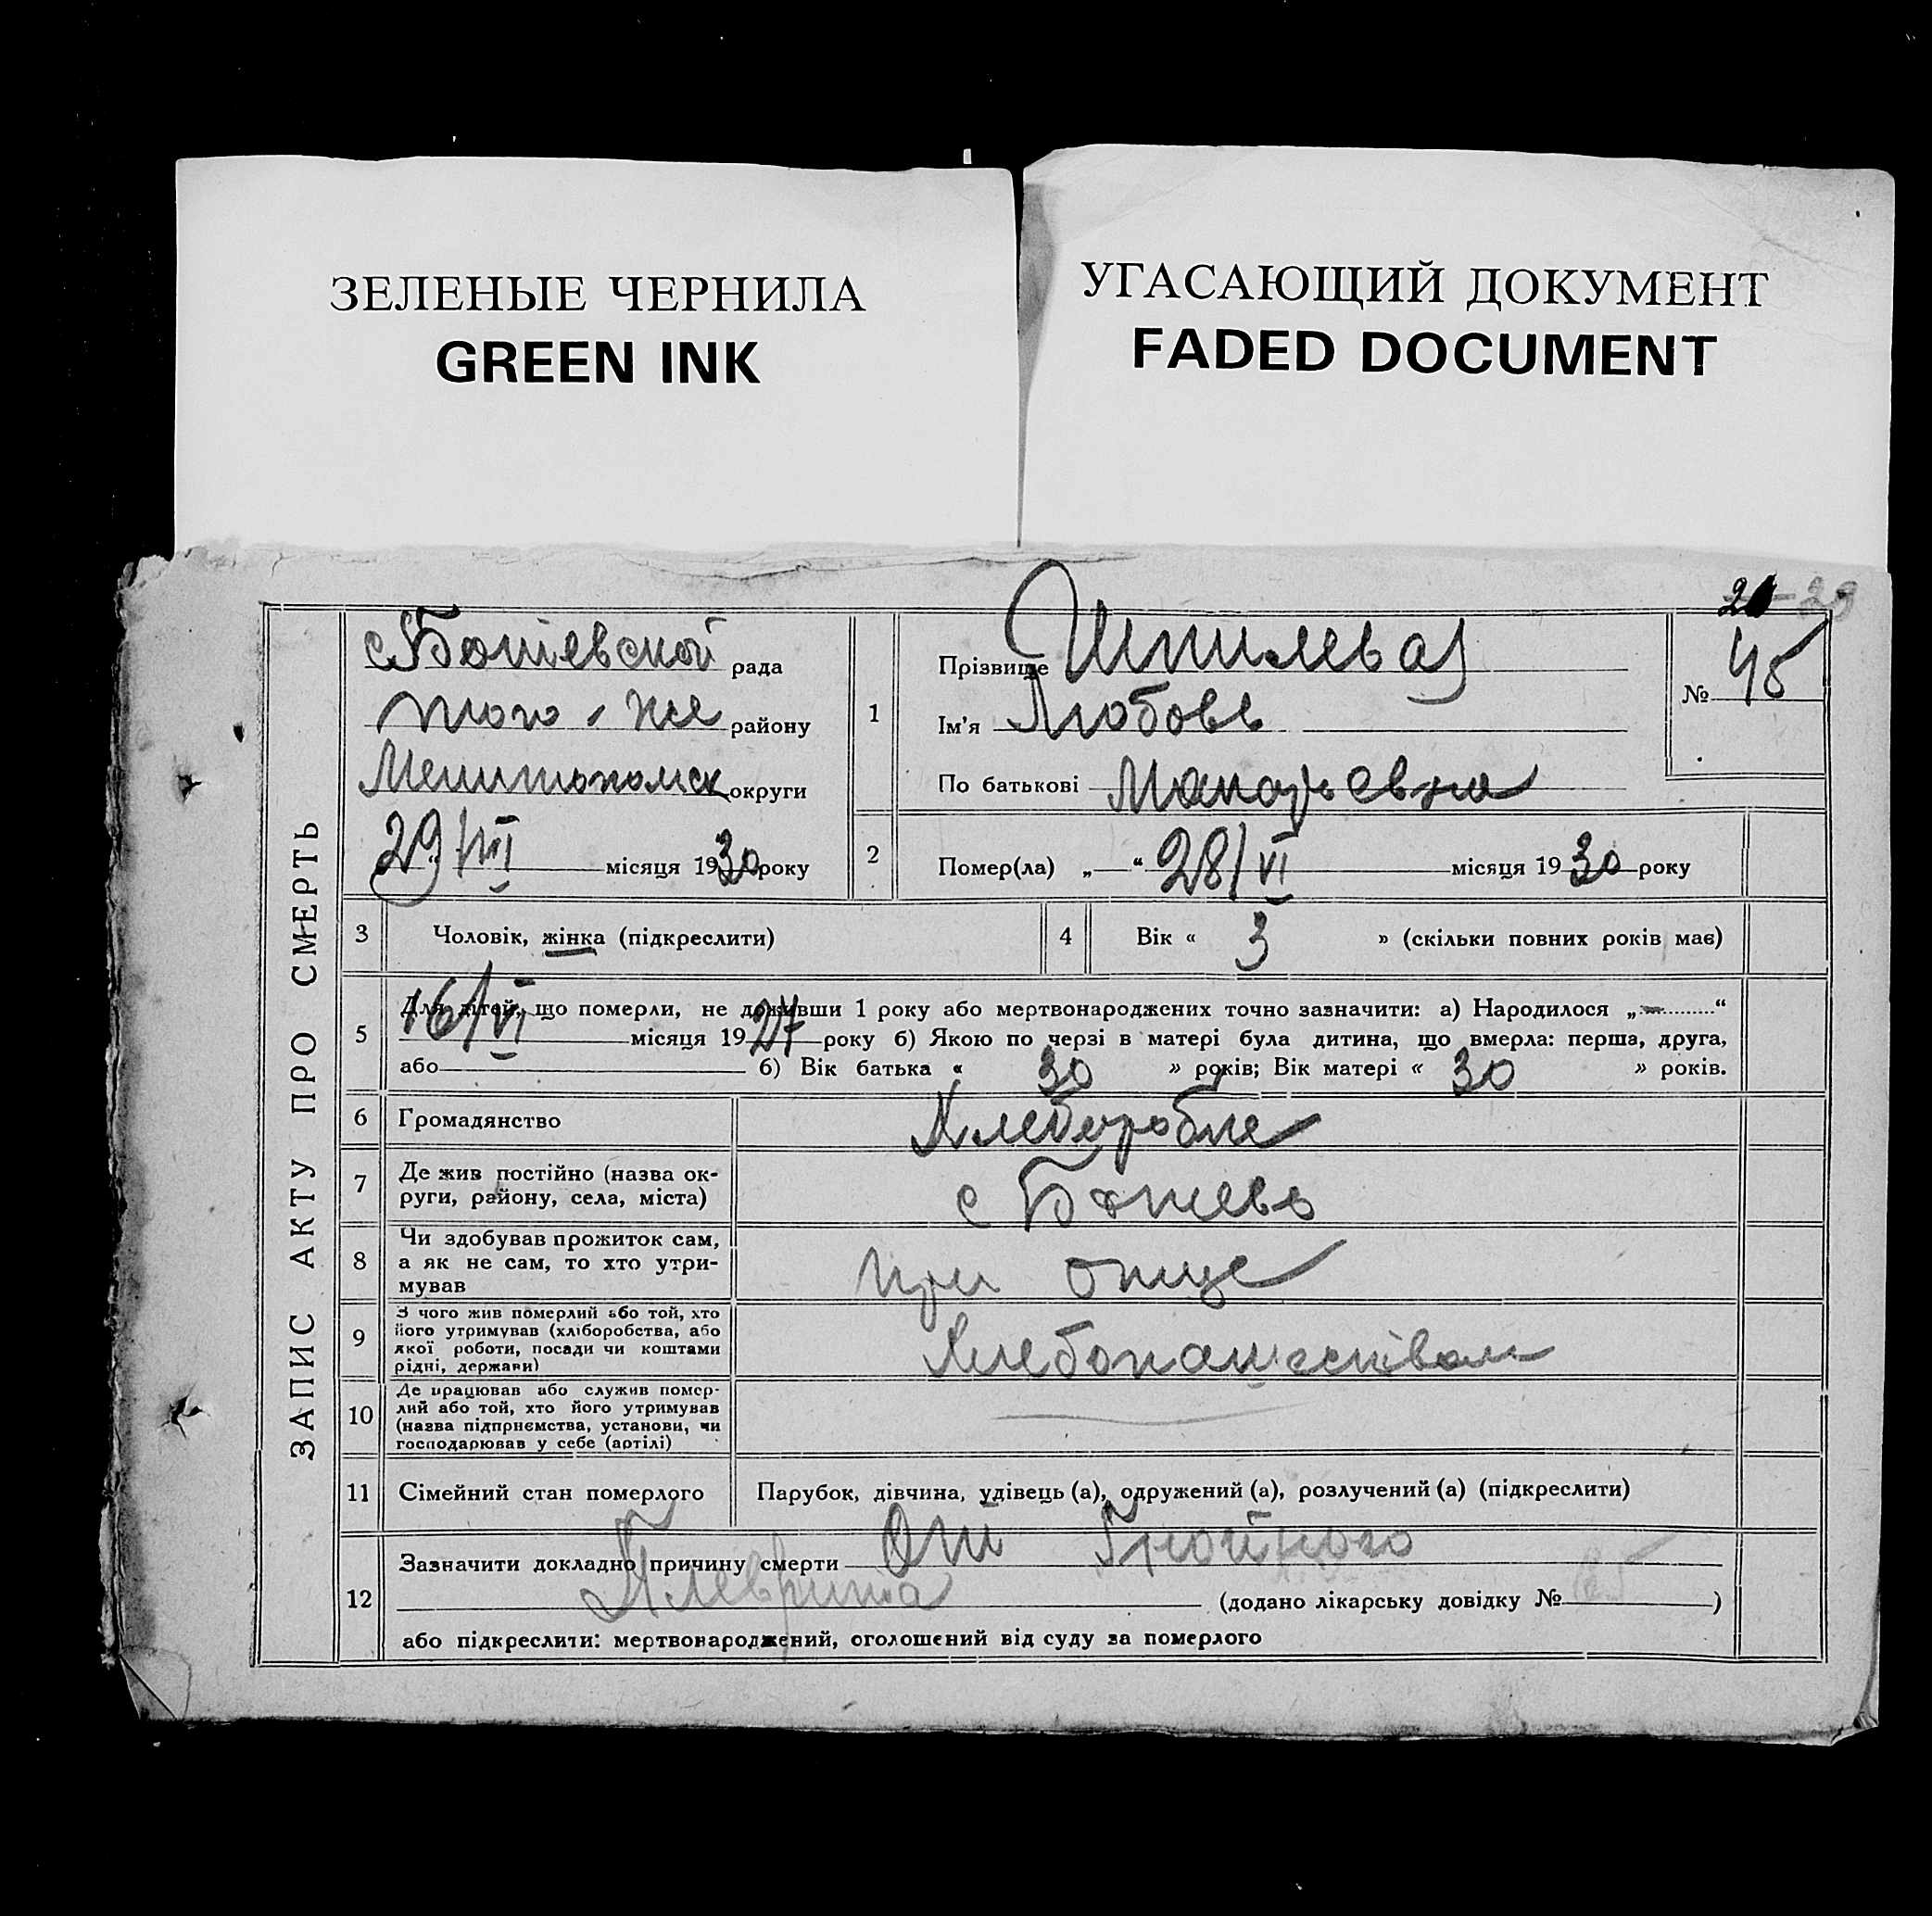 ЗЕЛЕНЫЕ ЧЕРНИЛА
GREEN INK
УГАСАЮЩИЙ ДОКУМЕНТ
FADED DOCUMENT
ЗАПИС АКТУ ПРО СМЕРТЬ
рада
того-же району
Мелитопольск округи
29/VI місяця 1930 року
1
Прізвище Шпилевая
Ім'я Любовь
По батькові Макарьевна
№ 45
2
Помер(ла) „— “ 28/VI місяця 1930 року
3
Чоловік, жінка (підкреслити)
4
Вік « 3 » (скільки повних років має)
5
Для дітей, що померли, не доживши 1 року або мертвонароджених точно зазначити: а) Народилося „ “
16/VI місяця 1927 року б) Якою по черзі в матері була дитина, що вмерла: перша, друга,
або б) Вік батька « 30 » років; Вік матері « 30 » років.
6
Громадянство
7
Де жив постійно (назва ок-
руги, району, села, міста)
с
8
Чи здобував прожиток сам,
а як не сам, то хто утри-
мував
при отце
9
З чого жив померлий або той, хто
його утримував (хліборобства, або
якої роботи, посади чи коштами
рідні, держави)
Хлебопашеством
10
Де працював або служив помер-
лий або той, хто його утримував
(назва підприємства, установи, чи
господарював у себе (артілі)
11
Сімейний стан померлого
Парубок, дівчина, удівець (а), одружений (а), розлучений (а) (підкреслити)
12
Зазначити докладно причину смерти От Гнойного
Плеврита (додано лікарську довідку № )
або підкреслити: мертвонароджений, оголошений від суду за померлого